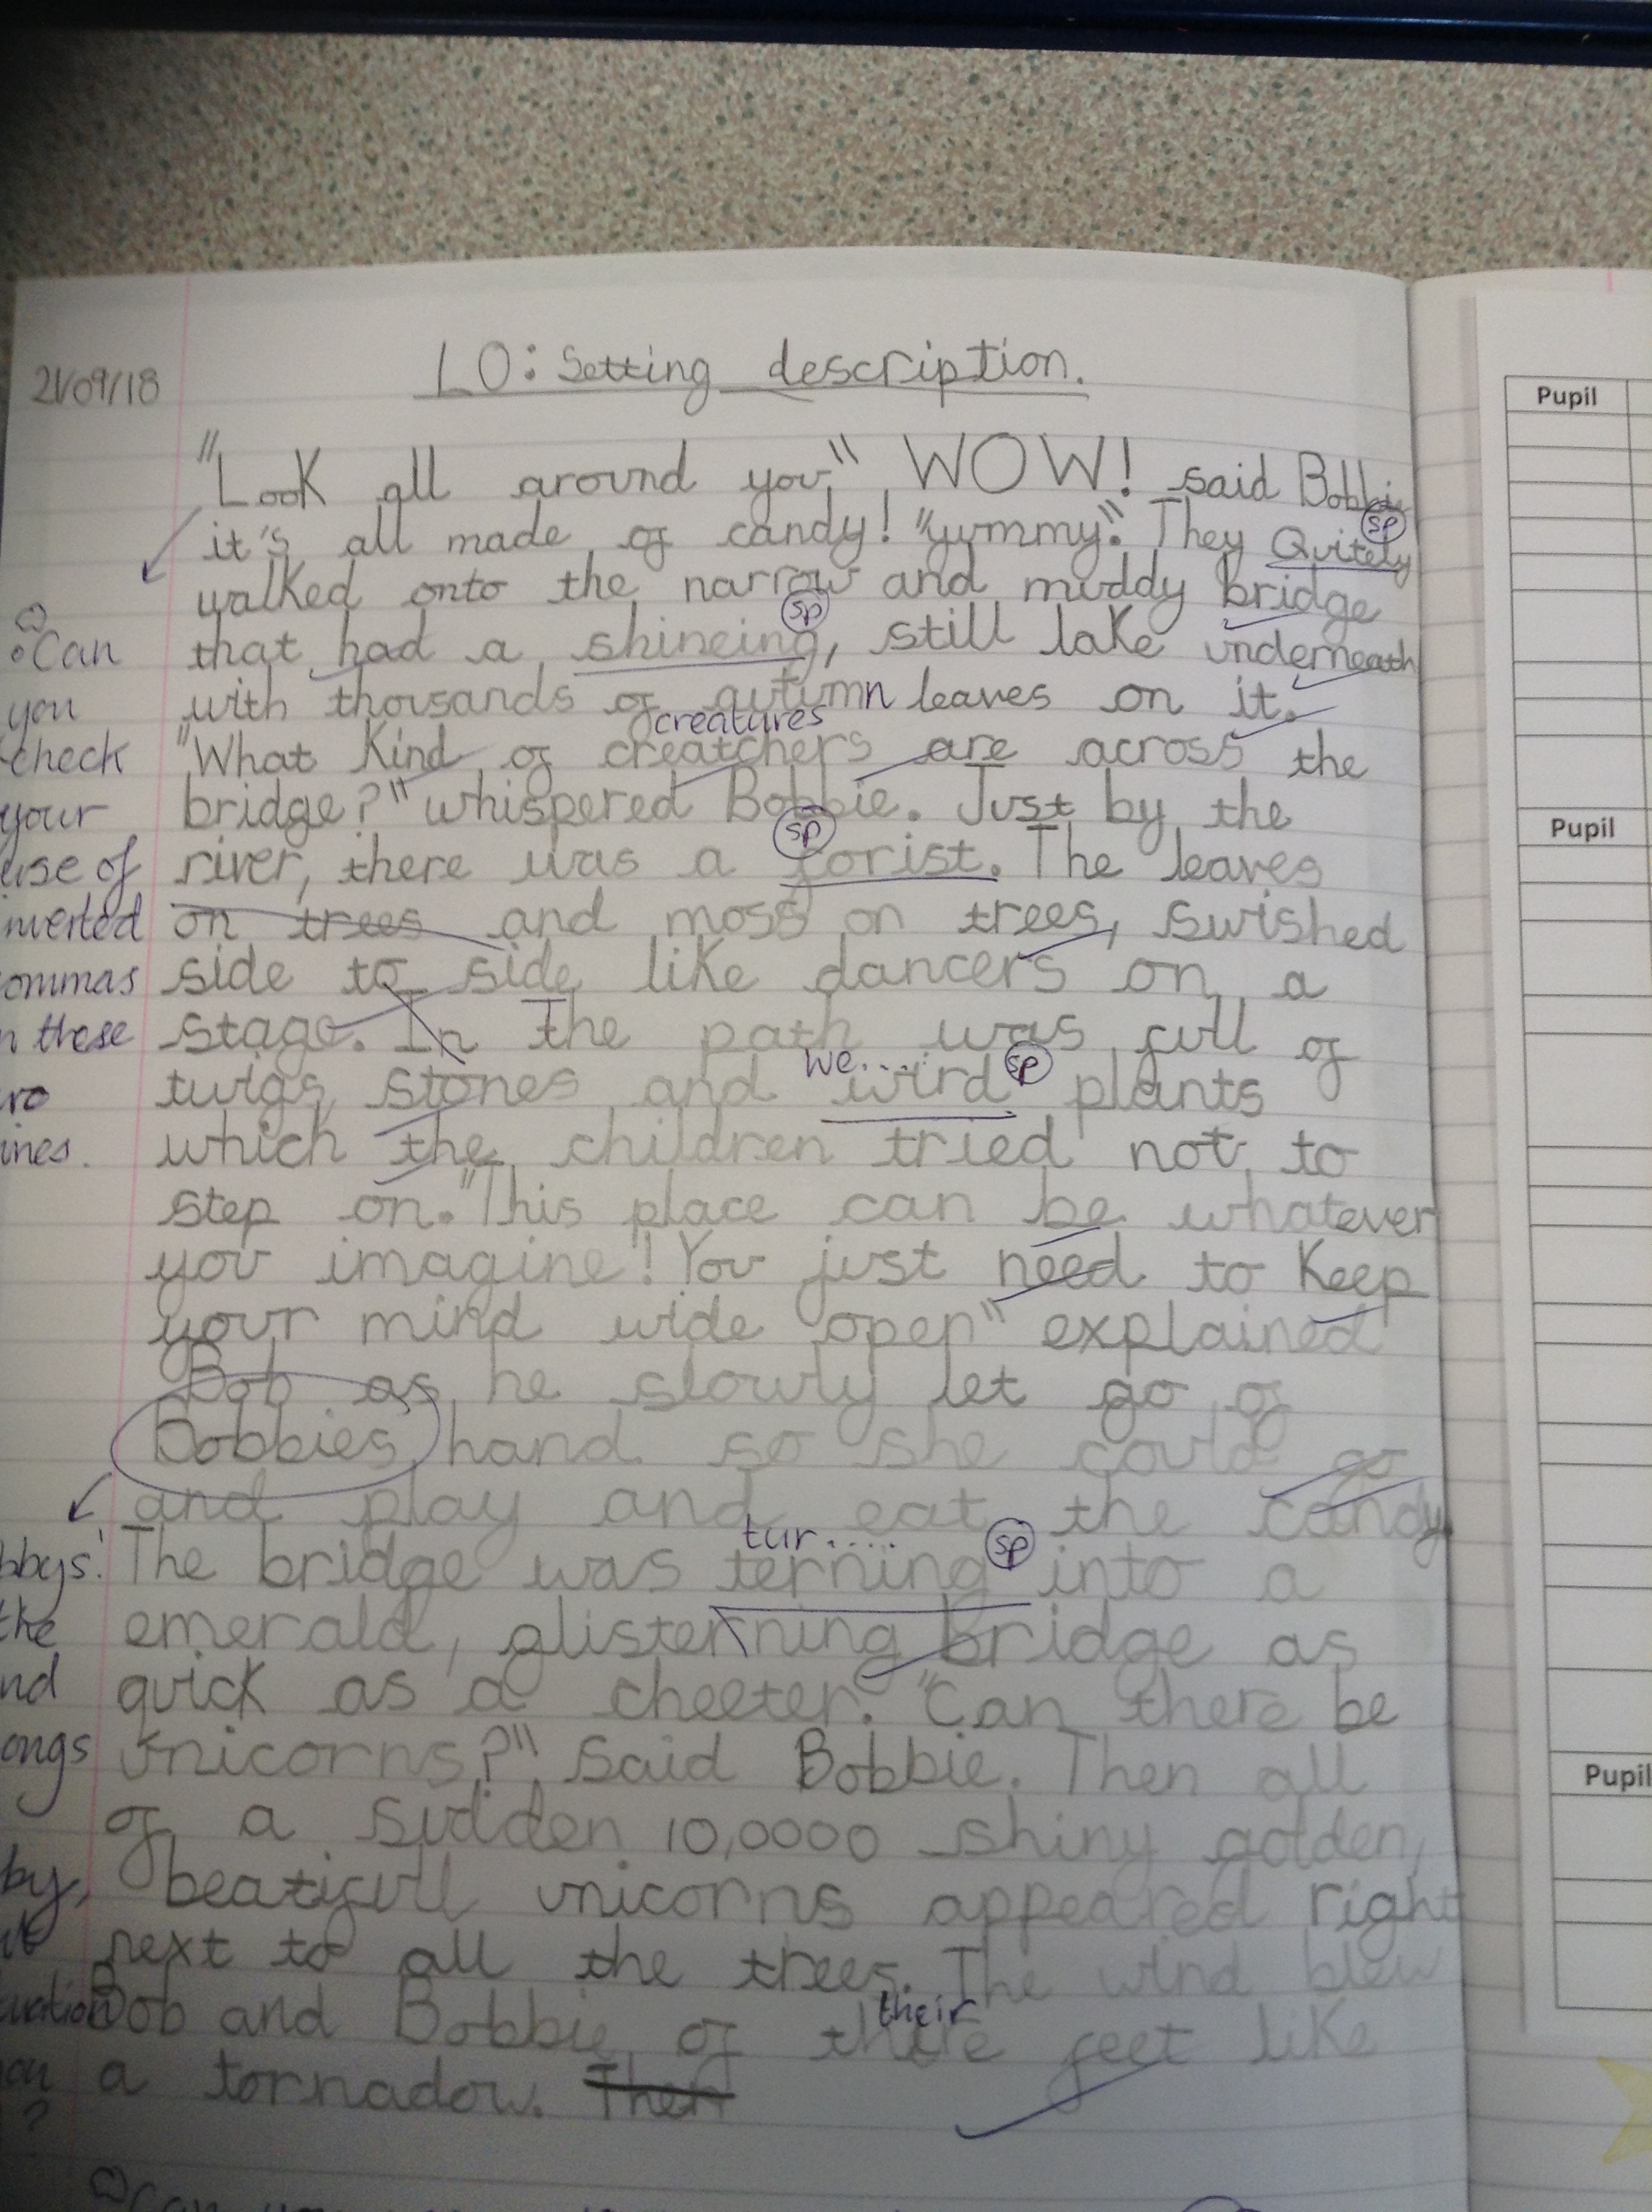 21/09/18
LO: Setting description.
"Look all around you" WOW! said Bobbie
sp
it's all made of candy! "yummy". They Quitely
walked onto the narrow and muddy bridge
sp
that had a shineing, still lake underneath
with thousands of autumn leaves on it.
creatures
"What Kind of creatchers are across the
bridge?" whispered Bobbie. Just by the
sp
river, there was a forist. The leaves
on trees and moss on trees, swished
side to side like dancers on a
stage. In The path was full of
we.... sp
twigs, stones and wird plants
which the children tried not to
step on. "This place can be whatever
you imagine! You just need to Keep
your mind wide open" explained
Bob as he slowly let go of
Bobbies hand so she could go
and play and eat the candy.
tur.... sp
The bridge was terning into a
emerald, glisterning bridge as
quick as a cheeter. "Can there be
unicorns?" said Bobbie. Then all
of a sudden 10,0000 shiny golden,
beatifull unicorns appeared right
next to all the trees. The wind blew
their
Bob and Bobbie of there feet like
a tornadow. Then
Can
you
check
your
use of
inverted
ommas
n these
wo
ines.
bbys'
the
nd
ongs
by,
uation
?
Pupil
Pupil
Pupil